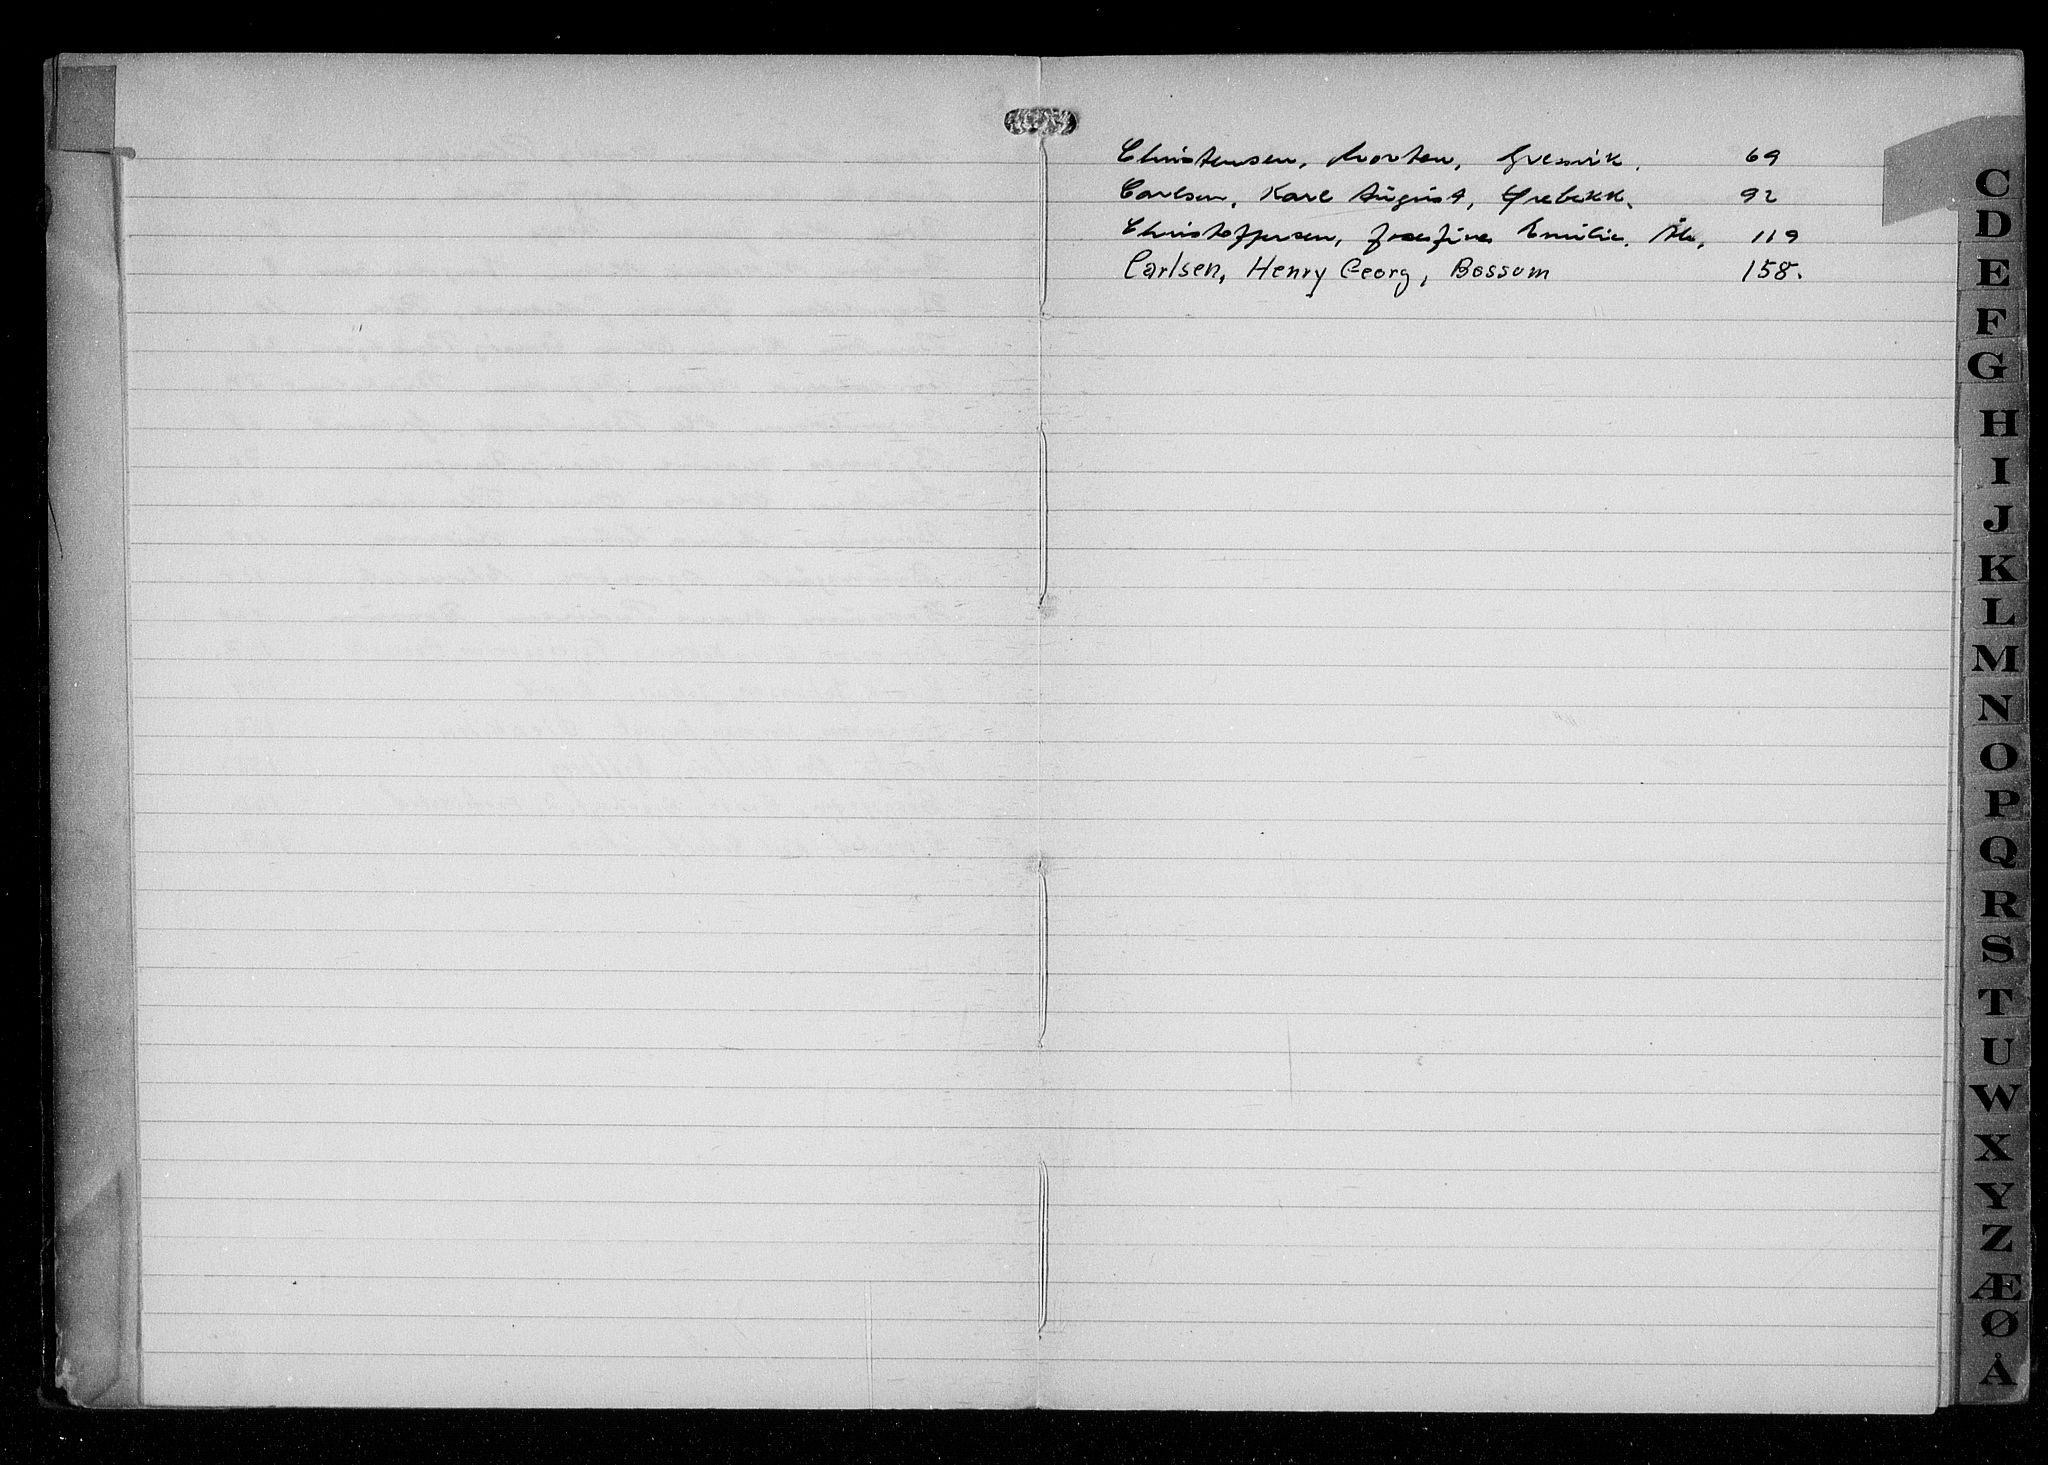 Christensen, Morten, Gressvik. 69
Carlsen, Karl August, Ørebekk. 92
Christoffersen, Josefine Emilie, Åle, 119
Carlsen, Henry Georg, Bossum 158.
C
D
E
F
G
H
I
J
K
L
M
N
O
P
Q
R
S
T
U
W
X
Y
Z
Æ
Ø
Å